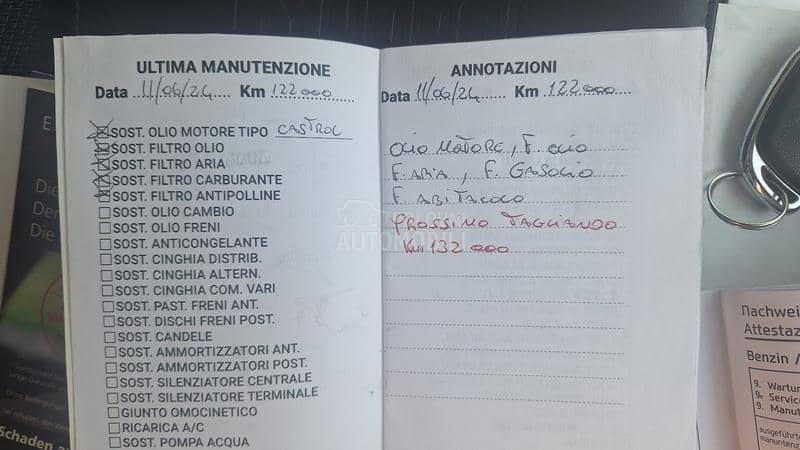 ULTIMA MANUTENZIONE
Data 11/06/24 Km 122000
SOST. OLIO MOTORE TIPO CASTROL
SOST. FILTRO OLIO
SOST. FILTRO ARIA
SOST. FILTRO CARBURANTE
SOST. FILTRO ANTIPOLLINE
SOST. OLIO CAMBIO
SOST. OLIO FRENI
SOST. ANTICONGELANTE
SOST. CINGHIA DISTRIB.
SOST. CINGHIA ALTERN.
SOST. CINGHIA COM. VARI
SOST. PAST. FRENI ANT.
SOST. DISCHI FRENI POST.
SOST. CANDELE
SOST. AMMORTIZZATORI ANT.
SOST. AMMORTIZZATORI POST.
SOST. SILENZIATORE CENTRALE
SOST. SILENZIATORE TERMINALE
GIUNTO OMOCINETICO
RICARICA A/C
SOST. POMPA ACQUA
ANNOTAZIONI
Data 11/06/24 Km 122000
OLIO MOTORE, F. OLIO
F. ARIA, F. GASOLIO
F. ABITACOLO
PROSSIMO TAGLIANDO
Km 132 000
AUTOMOBILI
Die
Der
Die
Schaden a
Nachwei
Attestaz
Benzin /
9. Wartur
9. Servic
9. Manut
ausgeführte
manutenz